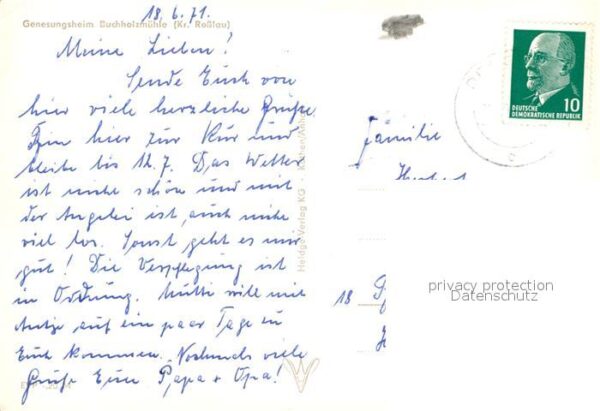 18.6.71.
Genesungsheim Buchholzmühle (Kr. Roßlau)
Meine Lieben!
Sende Euch von
hier viele herzliche Grüße
Bin hier zur Kur und
bleibe bis 12.7. Das Wetter
ist nicht schön und mit
der Angelei ist auch nicht
viel los. Sonst geht es mir
gut! Die Verpflegung ist
in Ordnung. Mutti will mit
Antje auf ein paar Tage zu
Euch kommen. Nochmals viele
Grüße Euer Papa + Opa!
Heldge-Verlag KG
DEUTSCHE
DEMOKRATISCHE REPUBLIK
10
Familie
18
privacy protection
Datenschutz